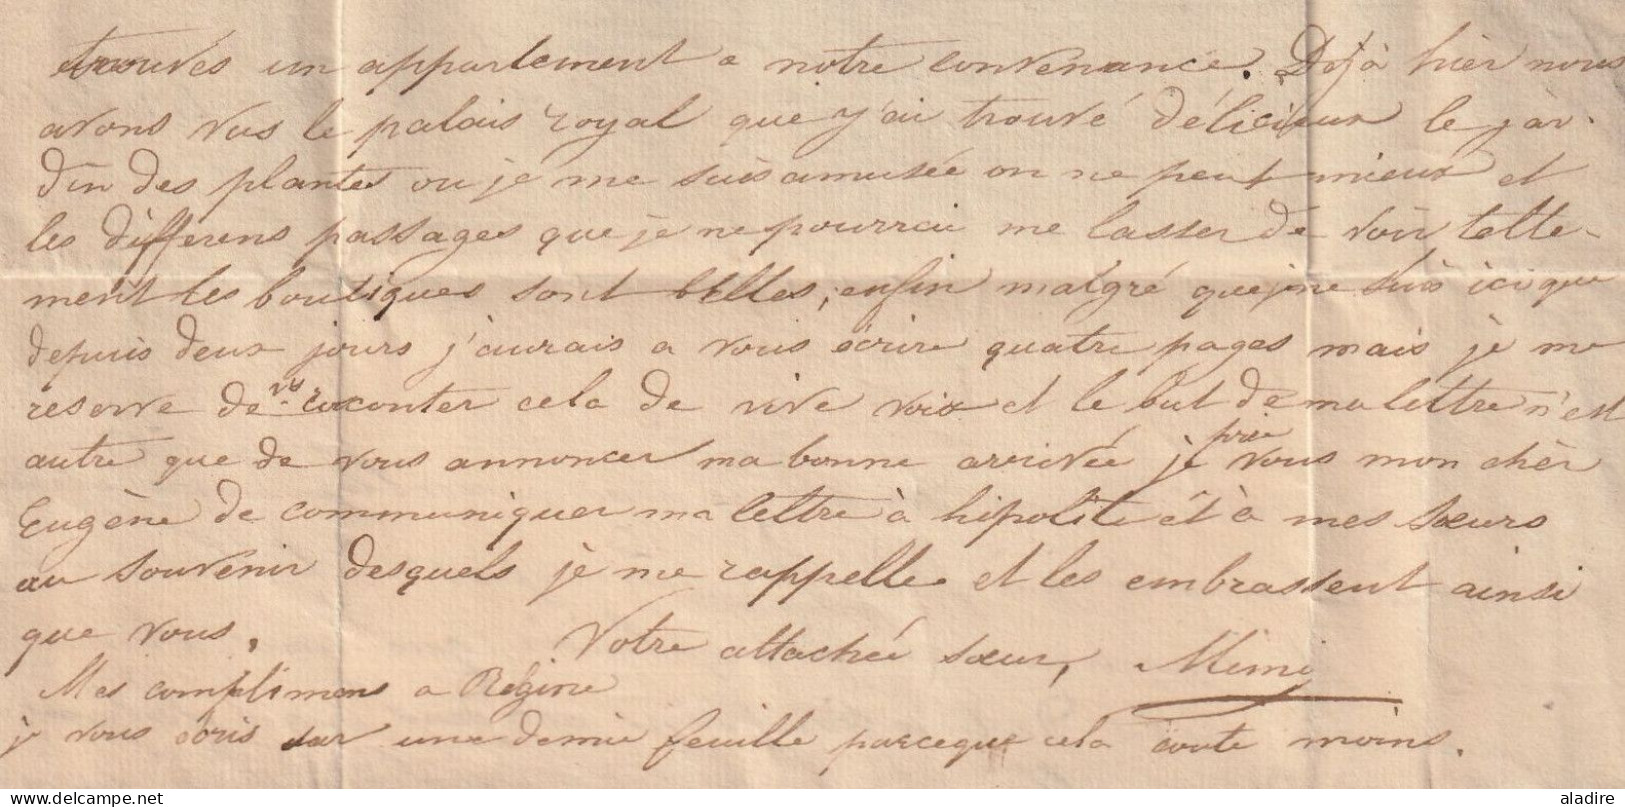 trouvés un appartement a notre convenance. Dejà hier nous
avons vus le palais royal que j'ai trouvé délicieux le jar-
din des plantes ou je me suis amusée on ne peut mieux et
les differens passages que je ne pourrai me lasser de voir telle-
ment les boutiques sont belles, enfin malgré que je ne suis ici que
depuis deux jours j'aurais a vous écrire quatre pages mais je me
reserve de vs raconter cela de vive voix et le but de ma lettre n'est
autre que de vous annoncer ma bonne arrivée je prie vous mon chèr
Eugène de communiquer ma lettre à hipolite et à mes sœurs
au souvenir desquels je me rappelle et les embrassent ainsi
que vous.
Votre attachée sœur, Mimi
Mes complimens a Régine
je vous écris sur une demie feuille parceque cela coute moins.
aladire